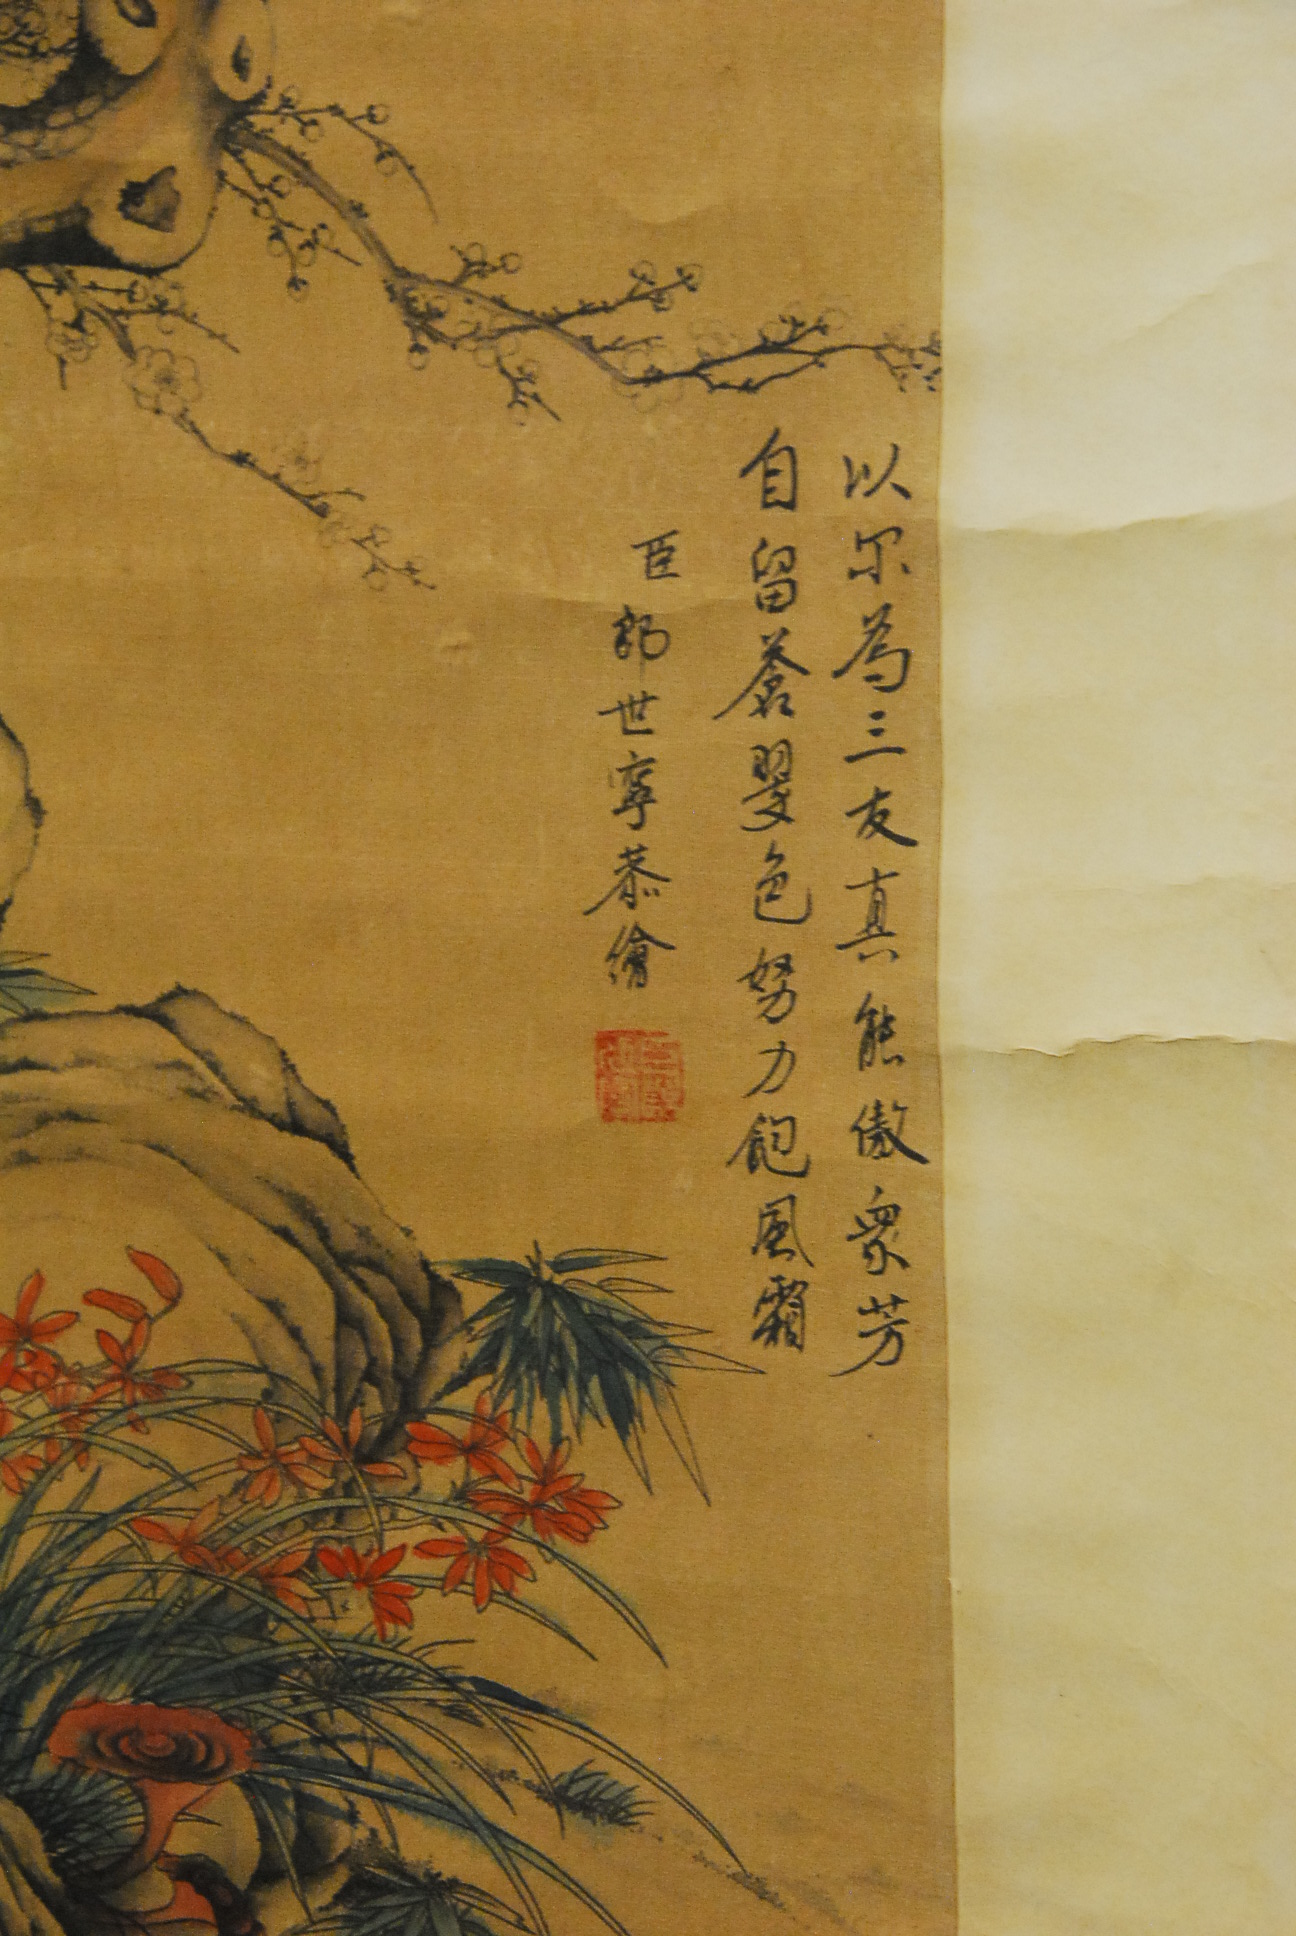 以尔為三友真能傲衆芳
自留蒼翠色努力飽風霜
臣郎世寧恭繪